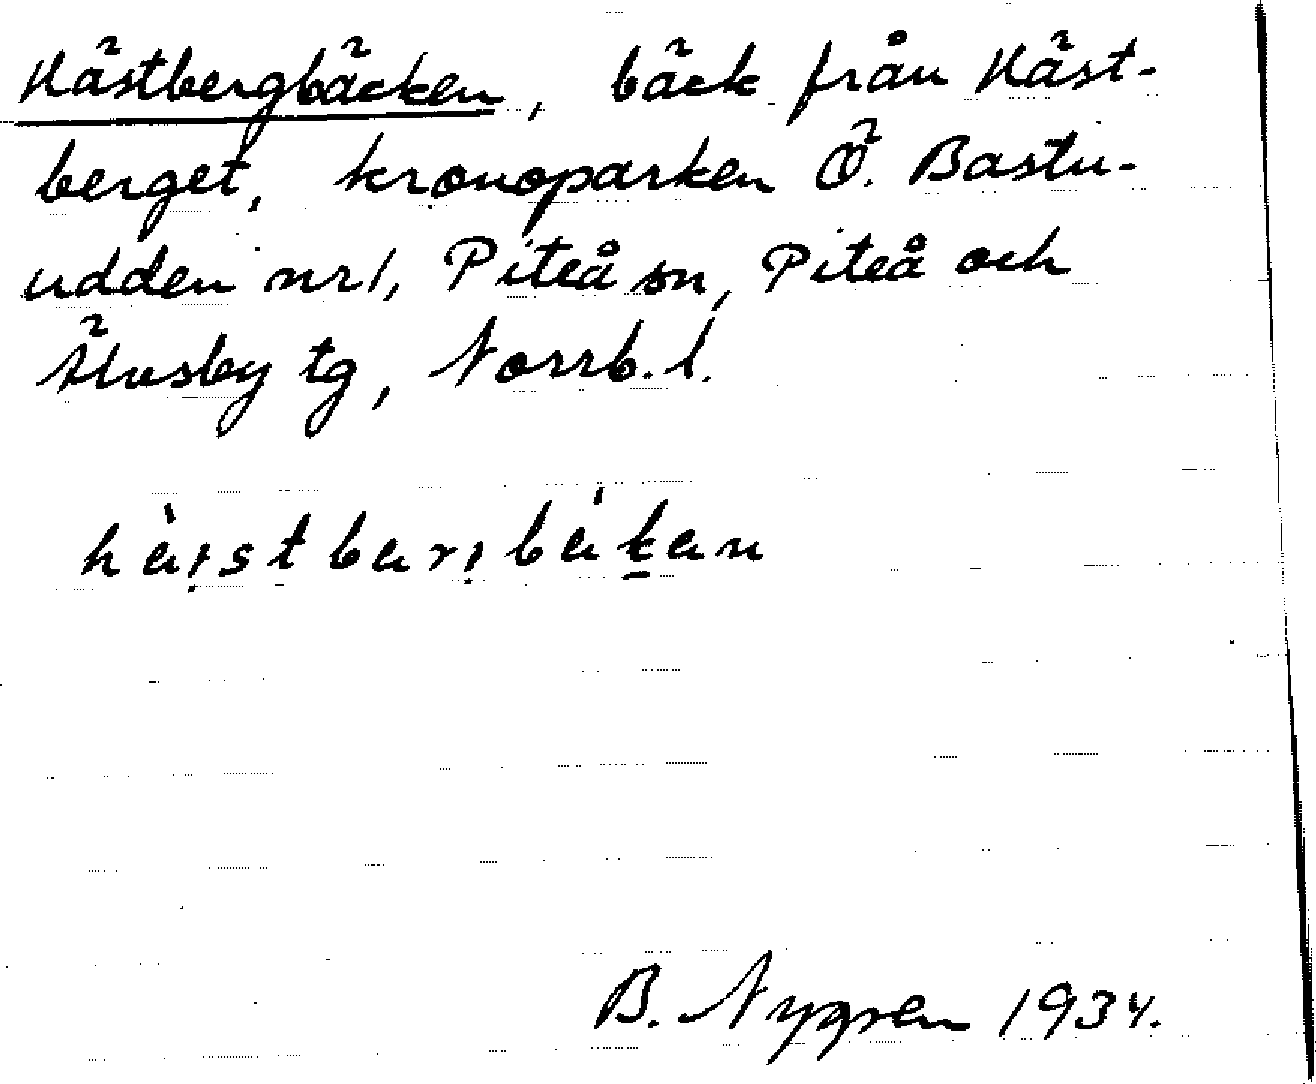 Hästbergbäcken, bäck från Häst-
berget, kronoparken Ö. Bastu-
udden nr 1, Piteå sn, Piteå och
Älvsby tg, Norrb. l.
B. Nygren 1934.